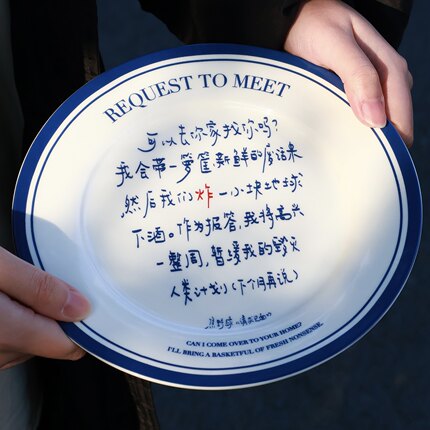 REQUEST TO MEET
可以去你家找你吗?
我会带一箩筐新鲜的废话来
然后我们炸一小块地球
下酒。作为报答,我将高兴
一整周,暂缓我的毁灭
人类计划(下个月再说)
CAN I COME OVER TO YOUR HOME?
I'LL BRING A BASKETFUL OF FRESH NONSENSE.